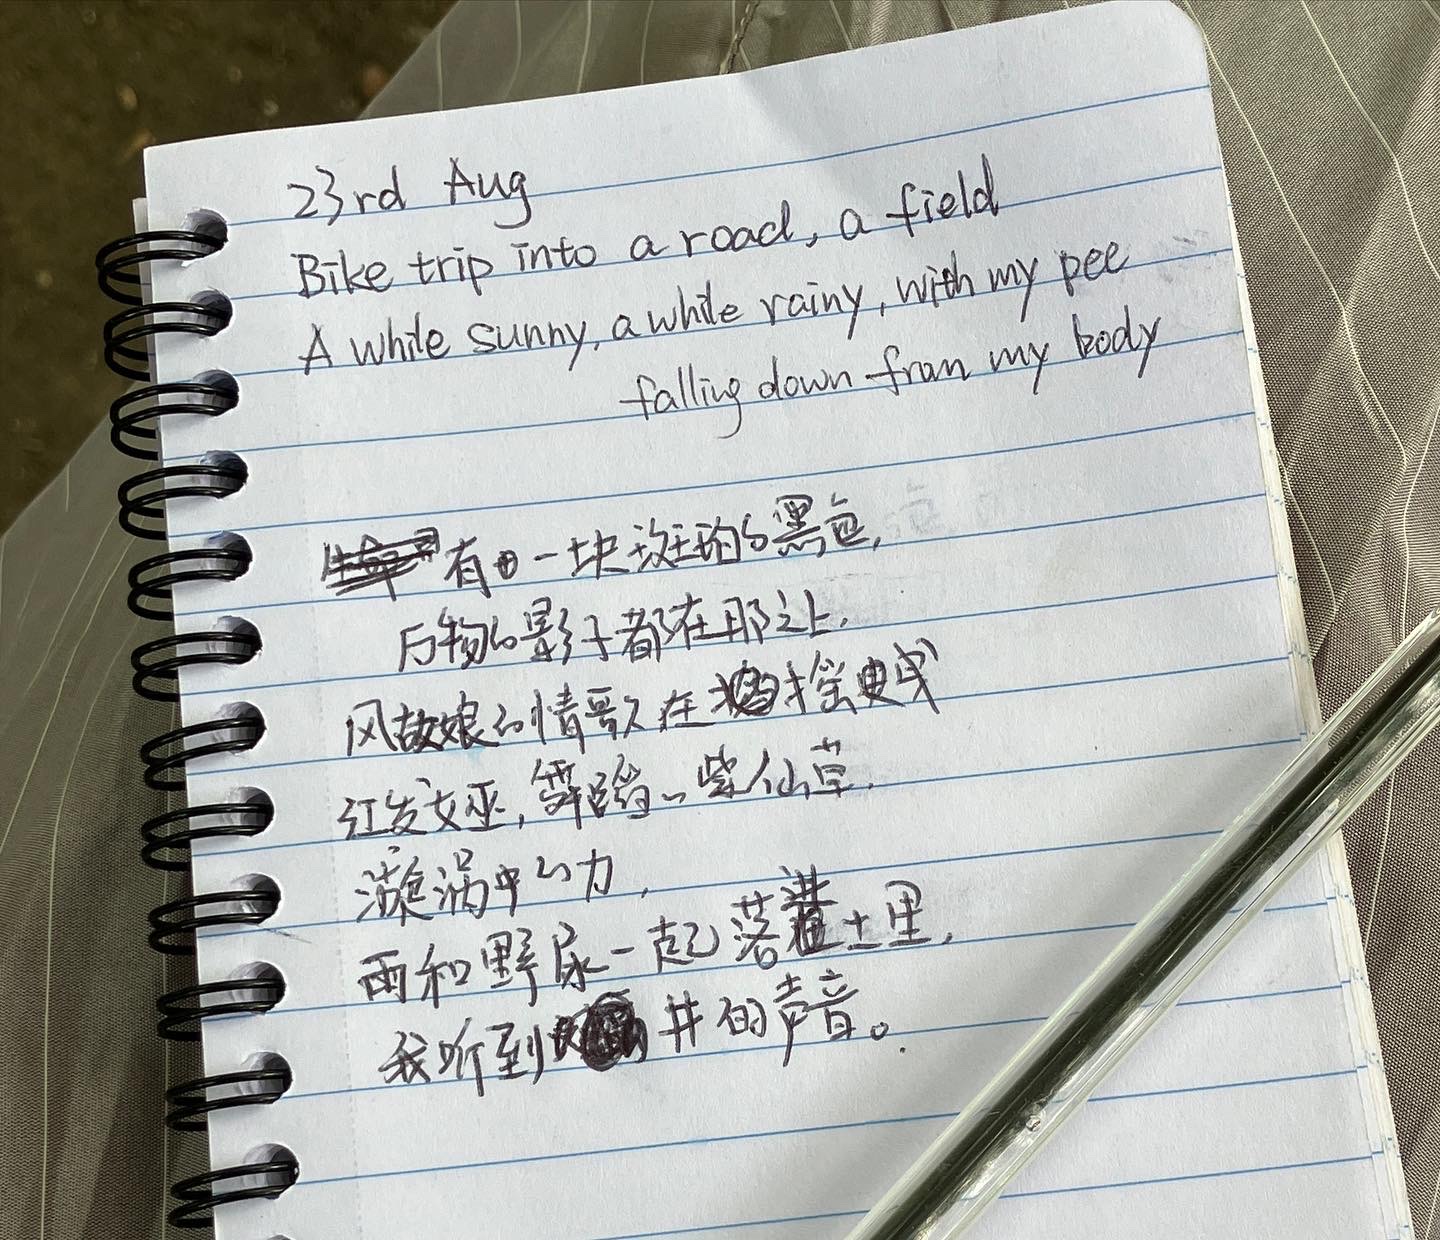 23rd Aug
Bike trip into a road, a field
A while sunny, a while rainy, with my pee
falling down from my body
有一块斑驳的黑色,
万物的影子都在那之上.
风姑娘的情歌在摇曳
红发女巫,舞蹈的紫仙草.
漩涡中的力,
雨和野尿一起落进土里,
我听到井的声音。